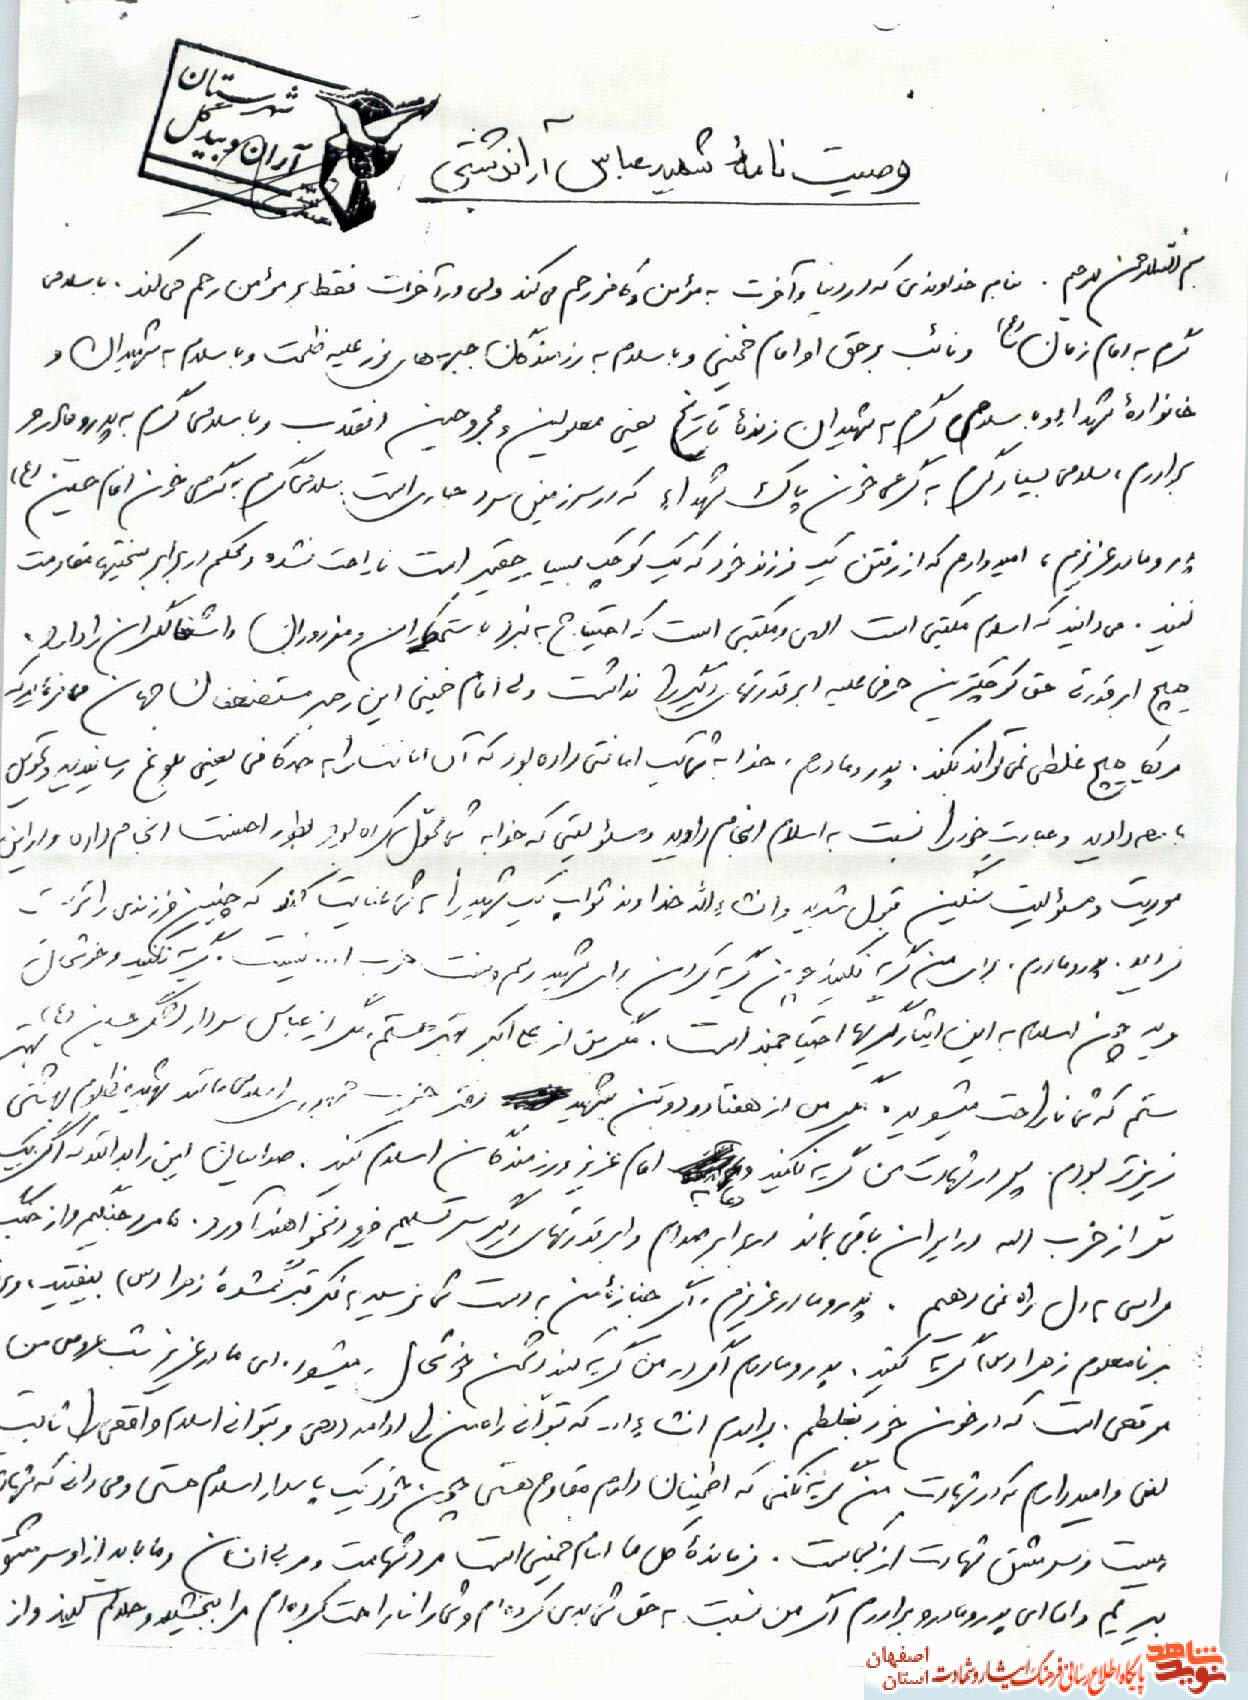 شهرستان
آران و بیدگل
وصیت نامهٔ شهید عباس آراندشتی
بسم الله الرحمن الرحیم . بنام خداوندی که در دنیا و آخرت به مؤمن و کافر رحم می کند ولی در آخرت فقط بر مؤمن رحم می کند . با سلامی
گرم به امام زمان (عج) و نائب بر حق او امام خمینی و با سلام به رزمندگان جبهه های نور علیه ظلمت و با سلام به شهیدان و
خانوادهٔ شهداء و با سلامی گرم به شهیدان زندهٔ تاریخ یعنی معلولین و مجروحین انقلاب و با سلامی گرم به پدر و مادر و
برادرم ، سلامی بسیار گرم به گرمی خون پاک شهداء که در سرزمین سرد جاری است سلامی گرم به گرمی خون امام حسین (ع)
پدر و مادر عزیزم ، امیدوارم که از رفتن یک فرزند خود که یک کوچک بسیار حقیر است ناراحت نشده و محکم در برابر سختیها مقاومت
کنید . می دانید که اسلام مکتبی است الهی و مکتبی است که احتیاج به نبرد با ستمگران و مزدوران و اشغالگران را دارد .
هیچ ابرقدرتی حق کوچکترین حرفی علیه ابرقدرتهای دیگر را نداشت ولی امام خمینی این رهبر مستضعفان جهان می فرماید که
مریکا هیچ غلطی نمی تواند بکند . پدر و مادرم ، خدا به شما یک امانتی داده بود که آن امانت را به حد کافی یعنی بلوغ رسانیدید و تحویل
دادید و عبادت خود را نسبت به اسلام انجام دادید و مسئولیتی که خدا به شما محول کرده بود بطور احسنت انجام داده و در این
موریت و مسؤلیت سنگین قبول شدید و انشاءالله خداوند ثواب یک شهید را به شما عنایت کند که چنین فرزندی را تربیت
کرده اید . پدر و مادرم . برای من گریه نکنید چون گریه کردن برای شهید رسم و سنت حزب ا... نیست . گریه نکنید و خوشحال
وید چون اسلام به این ایثارگریها احتیاجمند است . مگر من از علی اکبر بهتر هستم ، مگر از عباس سردار لشگر حسین (ع) بهتر
ستم که شما ناراحت میشوید . مگر من از هفتاد و دو تن شهید دفتر حزب جمهوری اسلامی مانند شهید مظلوم بهشتی
زیزتر بودم . پس در شهادت من گریه نکنید و دعا به امام عزیز و رزمندگان اسلام کنید . صدامیان این را بدانند که اگر یک
نفر از حزب الله در ایران باقی بماند در برابر صدام و ابرقدرتهای دیگر سر تسلیم فرود نخواهند آورد . ما مرد جنگیم و از جنگ
هراسی به دل راه نمی دهیم . پدر و مادر عزیزم ، اگر جنازهٔ من به دست شما نرسید به فکر قبر گمشدهٔ زهرا (س) بیفتید ،
بر نامعلوم زهرا (س) گریه کنید . پدر و مادرم اگر در من گریه کنید دشمن خوشحال میشود . ای مادر عزیز شب عروسی من
موقعی است که در خون خود بغلطم . برادرم انشاءالله که بتوانی راه من را ادامه دهی و بتوانی اسلام واقعی را ثابت
کنی و امیدوارم که در شهادت من گریه نکنی که اطمینان دارم مقاوم هستی چون خود یک پاسدار اسلام هستی و می دانی که شهادت
چیست و سرمشق شهادت از کجاست . فرماندهٔ کل ما امام خمینی است مرد شهامت و مربی انسان و ما باید از او سرمشق
بگیریم و اما ای پدر و مادر و برادرم اگر من نسبت به حق شما بدی کرده ام و شما را ناراحت کرده ام مرا ببخشید و حلالم کنید و از
نوید شاهد
پایگاه اطلاع رسانی فرهنگ ایثار و شهادت
استان اصفهان